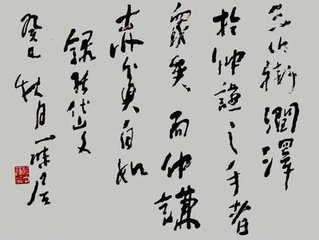 三山街潤澤
於仲謙之手者
而仲謙
赤貧自如
錄張岱文
癸巳秋月一味居